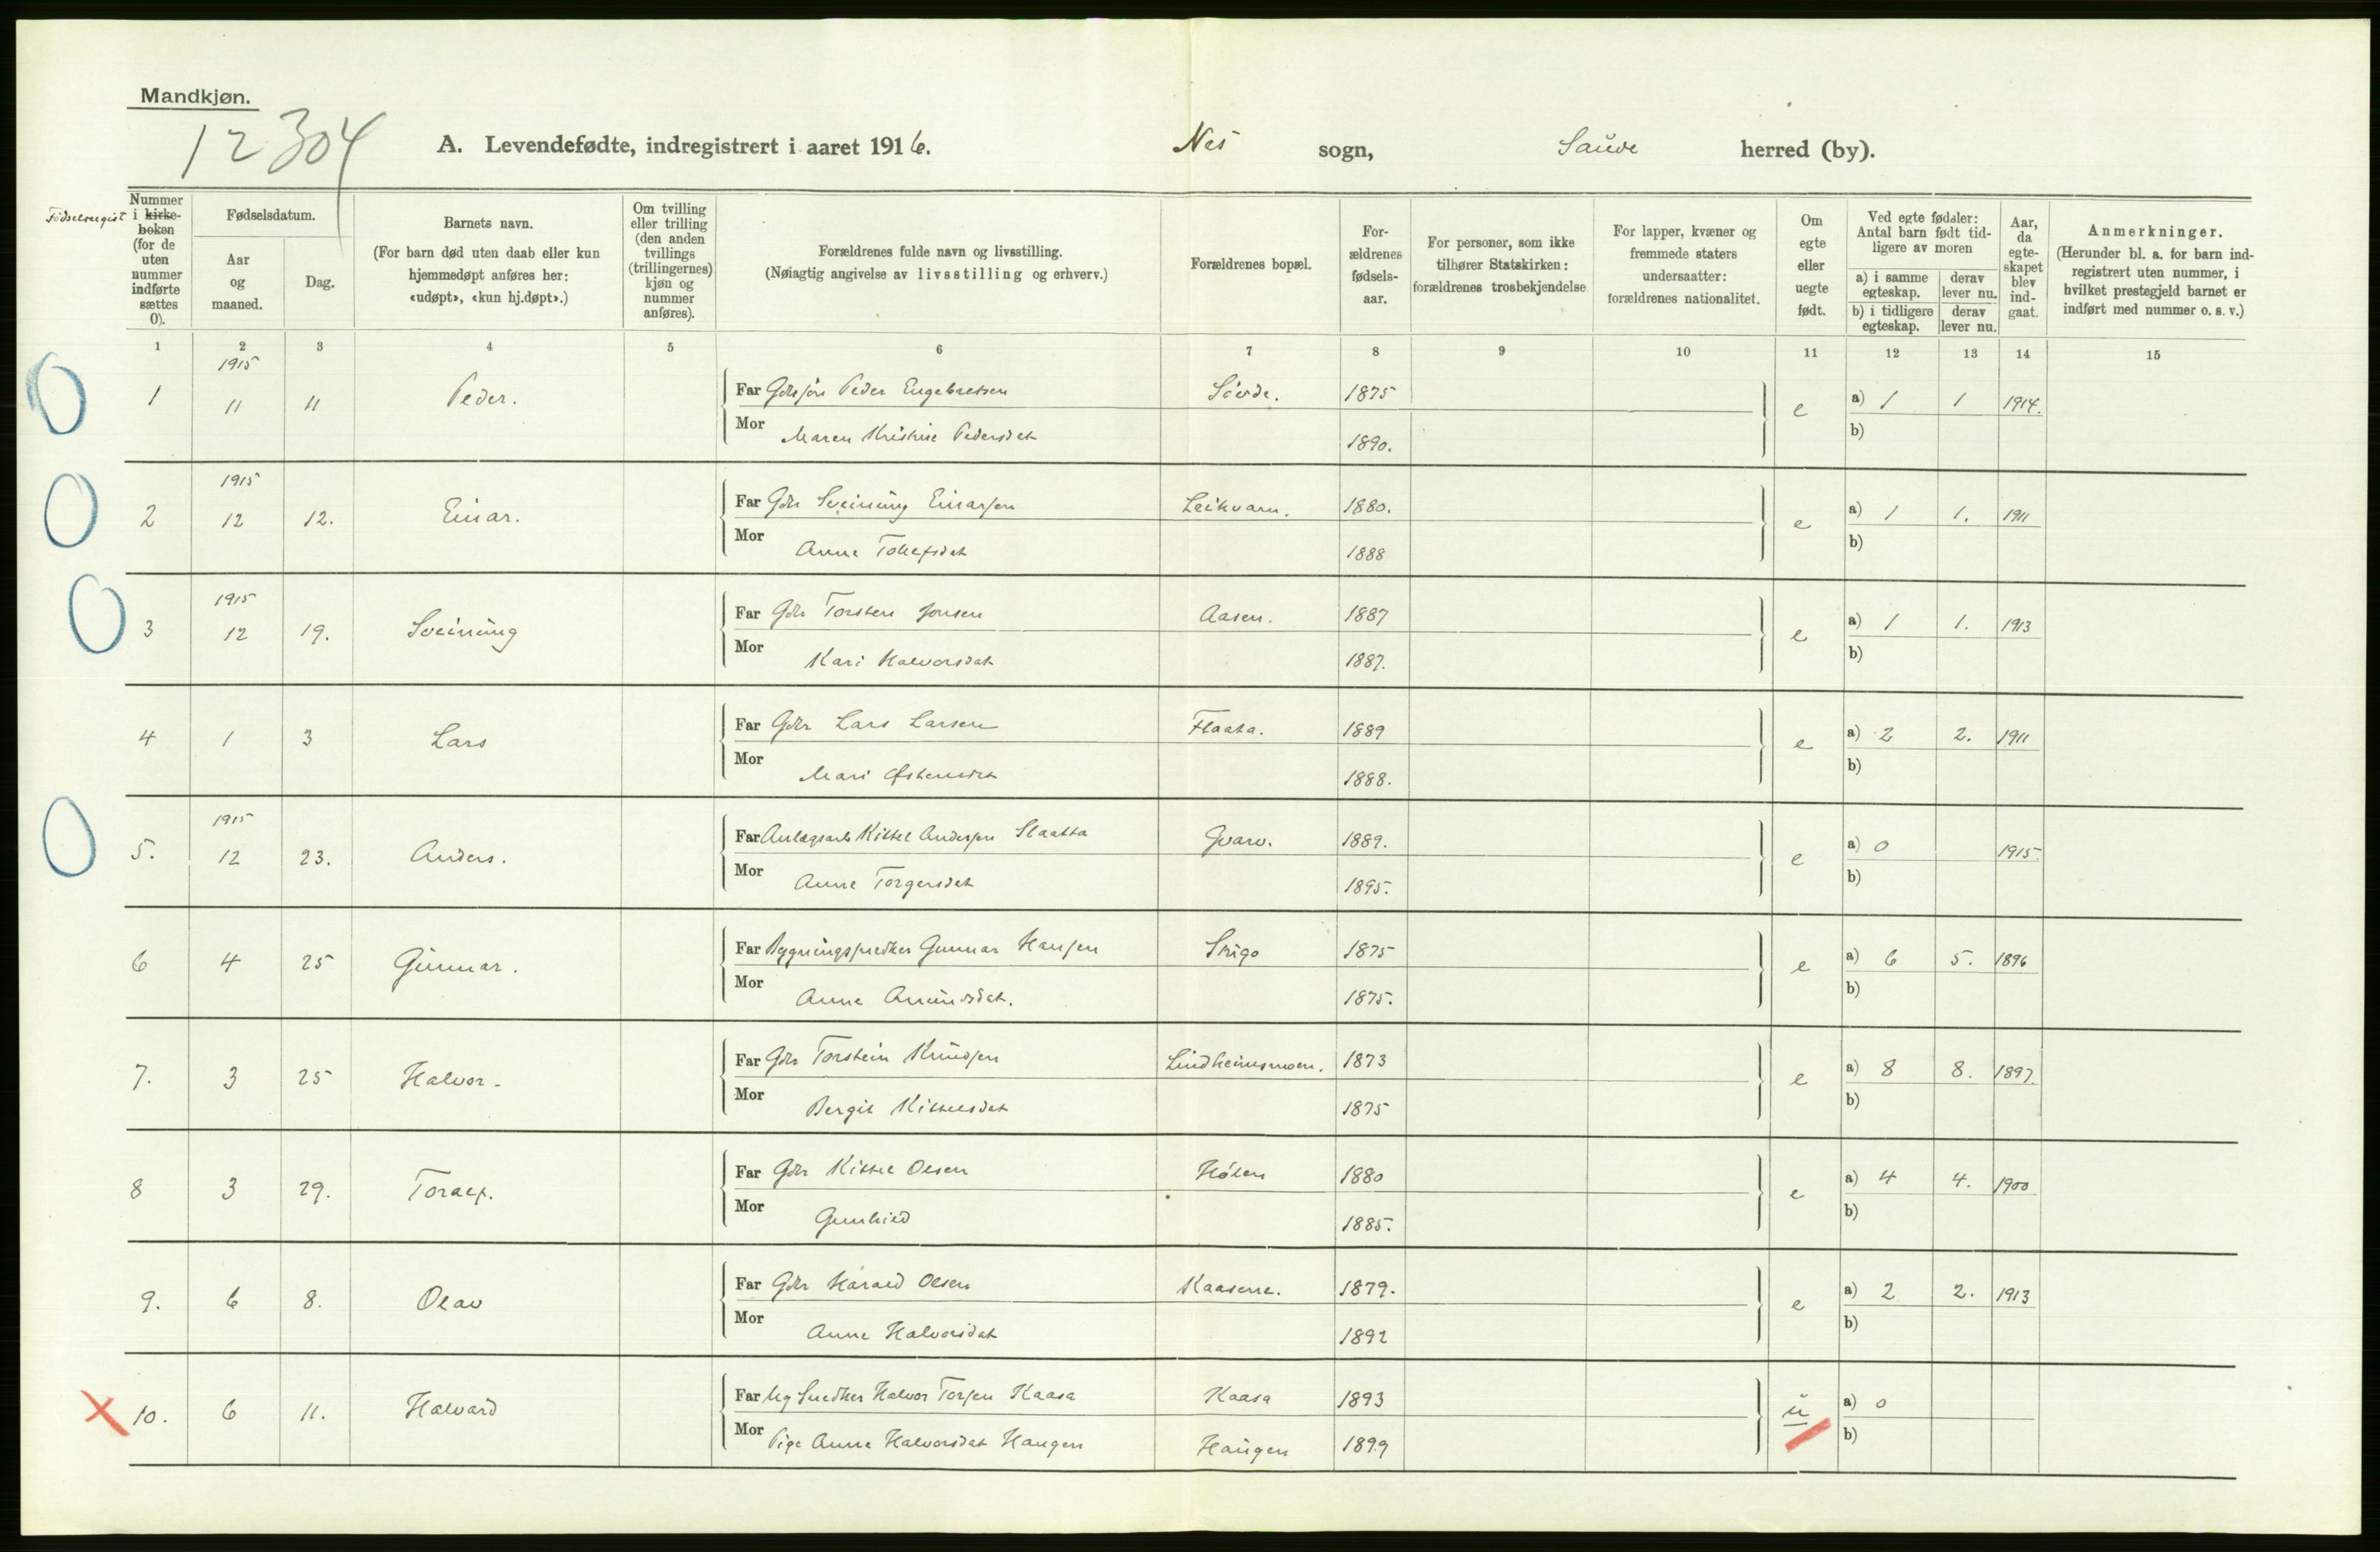 Mandkjøn.
12304
A. Levendefødte, indregistrert i aaret 1916. Nes sogn, Saude herred (by).
Fødselsregist
Nummer i kirke-boken (for de uten nummer indførte sættes 0).
Fødselsdatum.
Aar og maaned.
Dag.
Barnets navn.
(For barn død uten daab eller kun hjemmedøpt anføres her: «udøpt», «kun hj.døpt».)
Om tvilling eller trilling (den anden tvillings (trillingernes) kjøn og nummer anføres).
Forældrenes fulde navn og livsstilling.
(Nøiagtig angivelse av livsstilling og erhverv.)
Forældrenes bopæl.
For-ældrenes fødsels-aar.
For personer, som ikke tilhører Statskirken: forældrenes trosbekjendelse
For lapper, kvæner og fremmede staters undersaatter: forældrenes nationalitet.
Om egte eller uegte født.
Ved egte fødsler: Antal barn født tid-ligere av moren
a) i samme egteskap.
derav lever nu.
b) i tidligere egteskap.
derav lever nu.
Aar, da egte-skapet blev ind-gaat.
Anmerkninger.
(Herunder bl. a. for barn ind-registrert uten nummer, i hvilket prestegjeld barnet er indført med nummer o. s. v.)
1 2 3 4 5 6 7 8 9 10 11 12 13 14 15
1915
1 11 11 Peder. Far Peder Engebretsen Sövde. 1875 e a) 1 1 1914.
Mor Maren Kristine Pedersdat 1890. b)
1915
2 12 12. Einar. Far Gdr Sveinung Einarsen Leikvam. 1880. e a) 1 1. 1911
Mor Anne Tollefsdat 1888 b)
1915
3 12 19. Sveinung Far Gdr Torsten Jonsen Aasen. 1887 e a) 1 1. 1913
Mor Kari Halvorsdat 1887. b)
4 1 3 Lars Far Gdr Lars Larsen Flaata. 1889 e a) 2 2. 1911
Mor Mari Østensdat 1888. b)
1915
5. 12 23. Anders. Far Anlægsarb Kittel Andersen Slaatta Gvarv. 1889. e a) 0 1915.
Mor Anne Torgersdat 1895. b)
6 4 25 Gunnar. Far Bygningssnedker Gunnar Hansen Skigo 1875 e a) 6 5. 1896
Mor Anne Amundsdat. 1875. b)
7. 3 25 Halvor. Far Gdr Torstein Knudsen Lindheimsmoen. 1873 e a) 8 8. 1897.
Mor Bergit Kittelsdat 1875 b)
8 3 29. Toralf. Far Gdr Kittel Olsen Høten 1880 e a) 4 4. 1900
Mor Gunhild 1885. b)
9. 6 8. Olav Far Gdr Harald Olsen Kaasene. 1879. e a) 2 2. 1913
Mor Anne Halvorsdat 1892 b)
10. 6 11. Halvard Far Ug Snedker Halvor Torsen Kaasa Kaasa 1893 u a) 0
Mor Pige Anne Halvorsdat Haugen Haugen 1899 b)